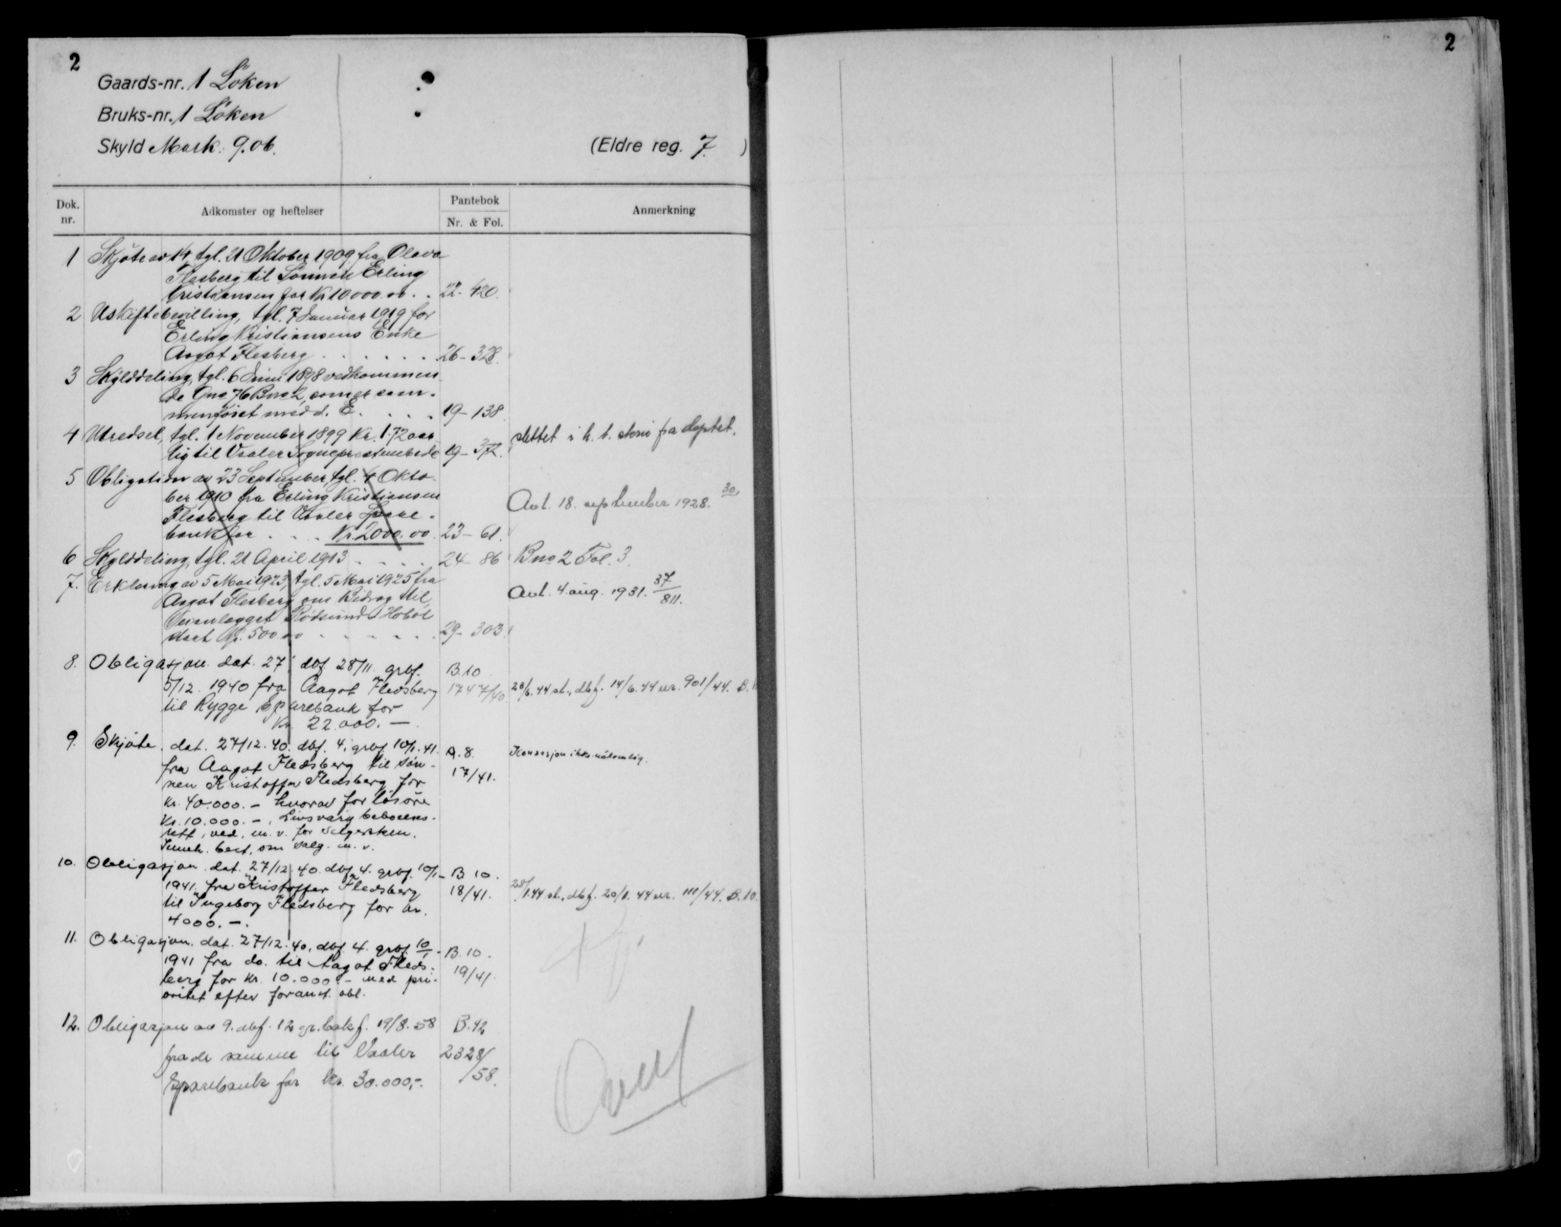 2
Gaards-nr. 1 Löken
Bruks-nr. 1 Löken
Skyld Mark. 9.06.
(Eldre reg. 7. )
Dok. nr.
Adkomster og heftelser
Pantebok
Nr. & Fol.
Anmerkning
1 Skjöte av tgl. 21 Oktober 1909 fra Olava
Flesberg til Sönnen Erling
Kristiansen for Kr 10000.00 . . 22- 420.
2 Uskiftebevilling, tgl. 7 Januar 1919 for
Erling Kristiansens Enke
Aagot Flesberg . . . . . . . 26- 328.
3 Skylddeling, tgl. 6 Juni 1898 vedkommen-
de Gno 76 Bno 2, som er sam-
menföiet med d. E. . . . . 19- 138.
4 Utredsel, tgl. 1 November 1899 Kr. 1.72 aar-
lig til Vaaler Sogneprestembede 19- 372. slettet i h. t. skriv fra deptet.
5 Obligation av 23 September, tgl. 4 Okto-
ber 1910 fra Erling Kristiansen
Flesberg til Vaaler Spare-
bank for . . . . Kr 2000.00. 23- 61. Avl. 18. september 1928. 30.
6 Skylddeling, tgl. 21 April 1913 . . . . . 24- 86 Bno 2 Fol. 3.
7. Erklæring av 5 Mai 1923, tgl. 5 Mai 1925 fra
Aagot Flesberg om Bidrag til
Veianlægget Rödsund - Hobøl
stort Kr. 500.00 . . . . . . . 29- 303. Avl. 4 aug. 1931. 37/811.
8. Obligasjon dat. 27. dbf 28/11. grbf.
5/12. 1940 fra Aagot Fledsberg
til Rygge Sparebank for
Kr. 22.000.—
B.10
1747/40
20/6.44 sl., dbf. 14/6.44 nr. 901/44. B.
9. Skjöte. dat. 27/12.40. dbf. 4. grbf 10/1.41.
fra Aagot Fledsberg til søn-
nen Kristoffer Fledsberg for
kr. 40.000.— hvorav for løsøre
kr. 10.000.—, Livsvarig beboelses-
rett, ved, m. v. for selgersken.
best. om salg. m. v.
A. 8.
17/41.
Konsesjon ikke nödvendig.
10. Obligasjon. dat. 27/12.40. dbf 4. grbf. 10/1-
1941. fra Kristoffer Fledsberg
til Ingeborg Fledsberg for kr.
4000.—.
B 10.
18/41.
25/1.44 sl., dbf. 20/1.44 nr. 111/44. B.10.
11. Obligasjon. dat. 27/12.40, dbf 4. grbf 10/1-
1941 fra do. til Aagot Fleds-
berg for kr. 10.000.— med pri-
oritet efter foranst. obl.
B. 10.
19/41.
12. Obligasjon av 9. dbf. 12 gr.bokf. 19/8.58
fra de samme til Vaaler
Sparebank for kr. 30.000,-.
B.42
2328/58.
Overf
2